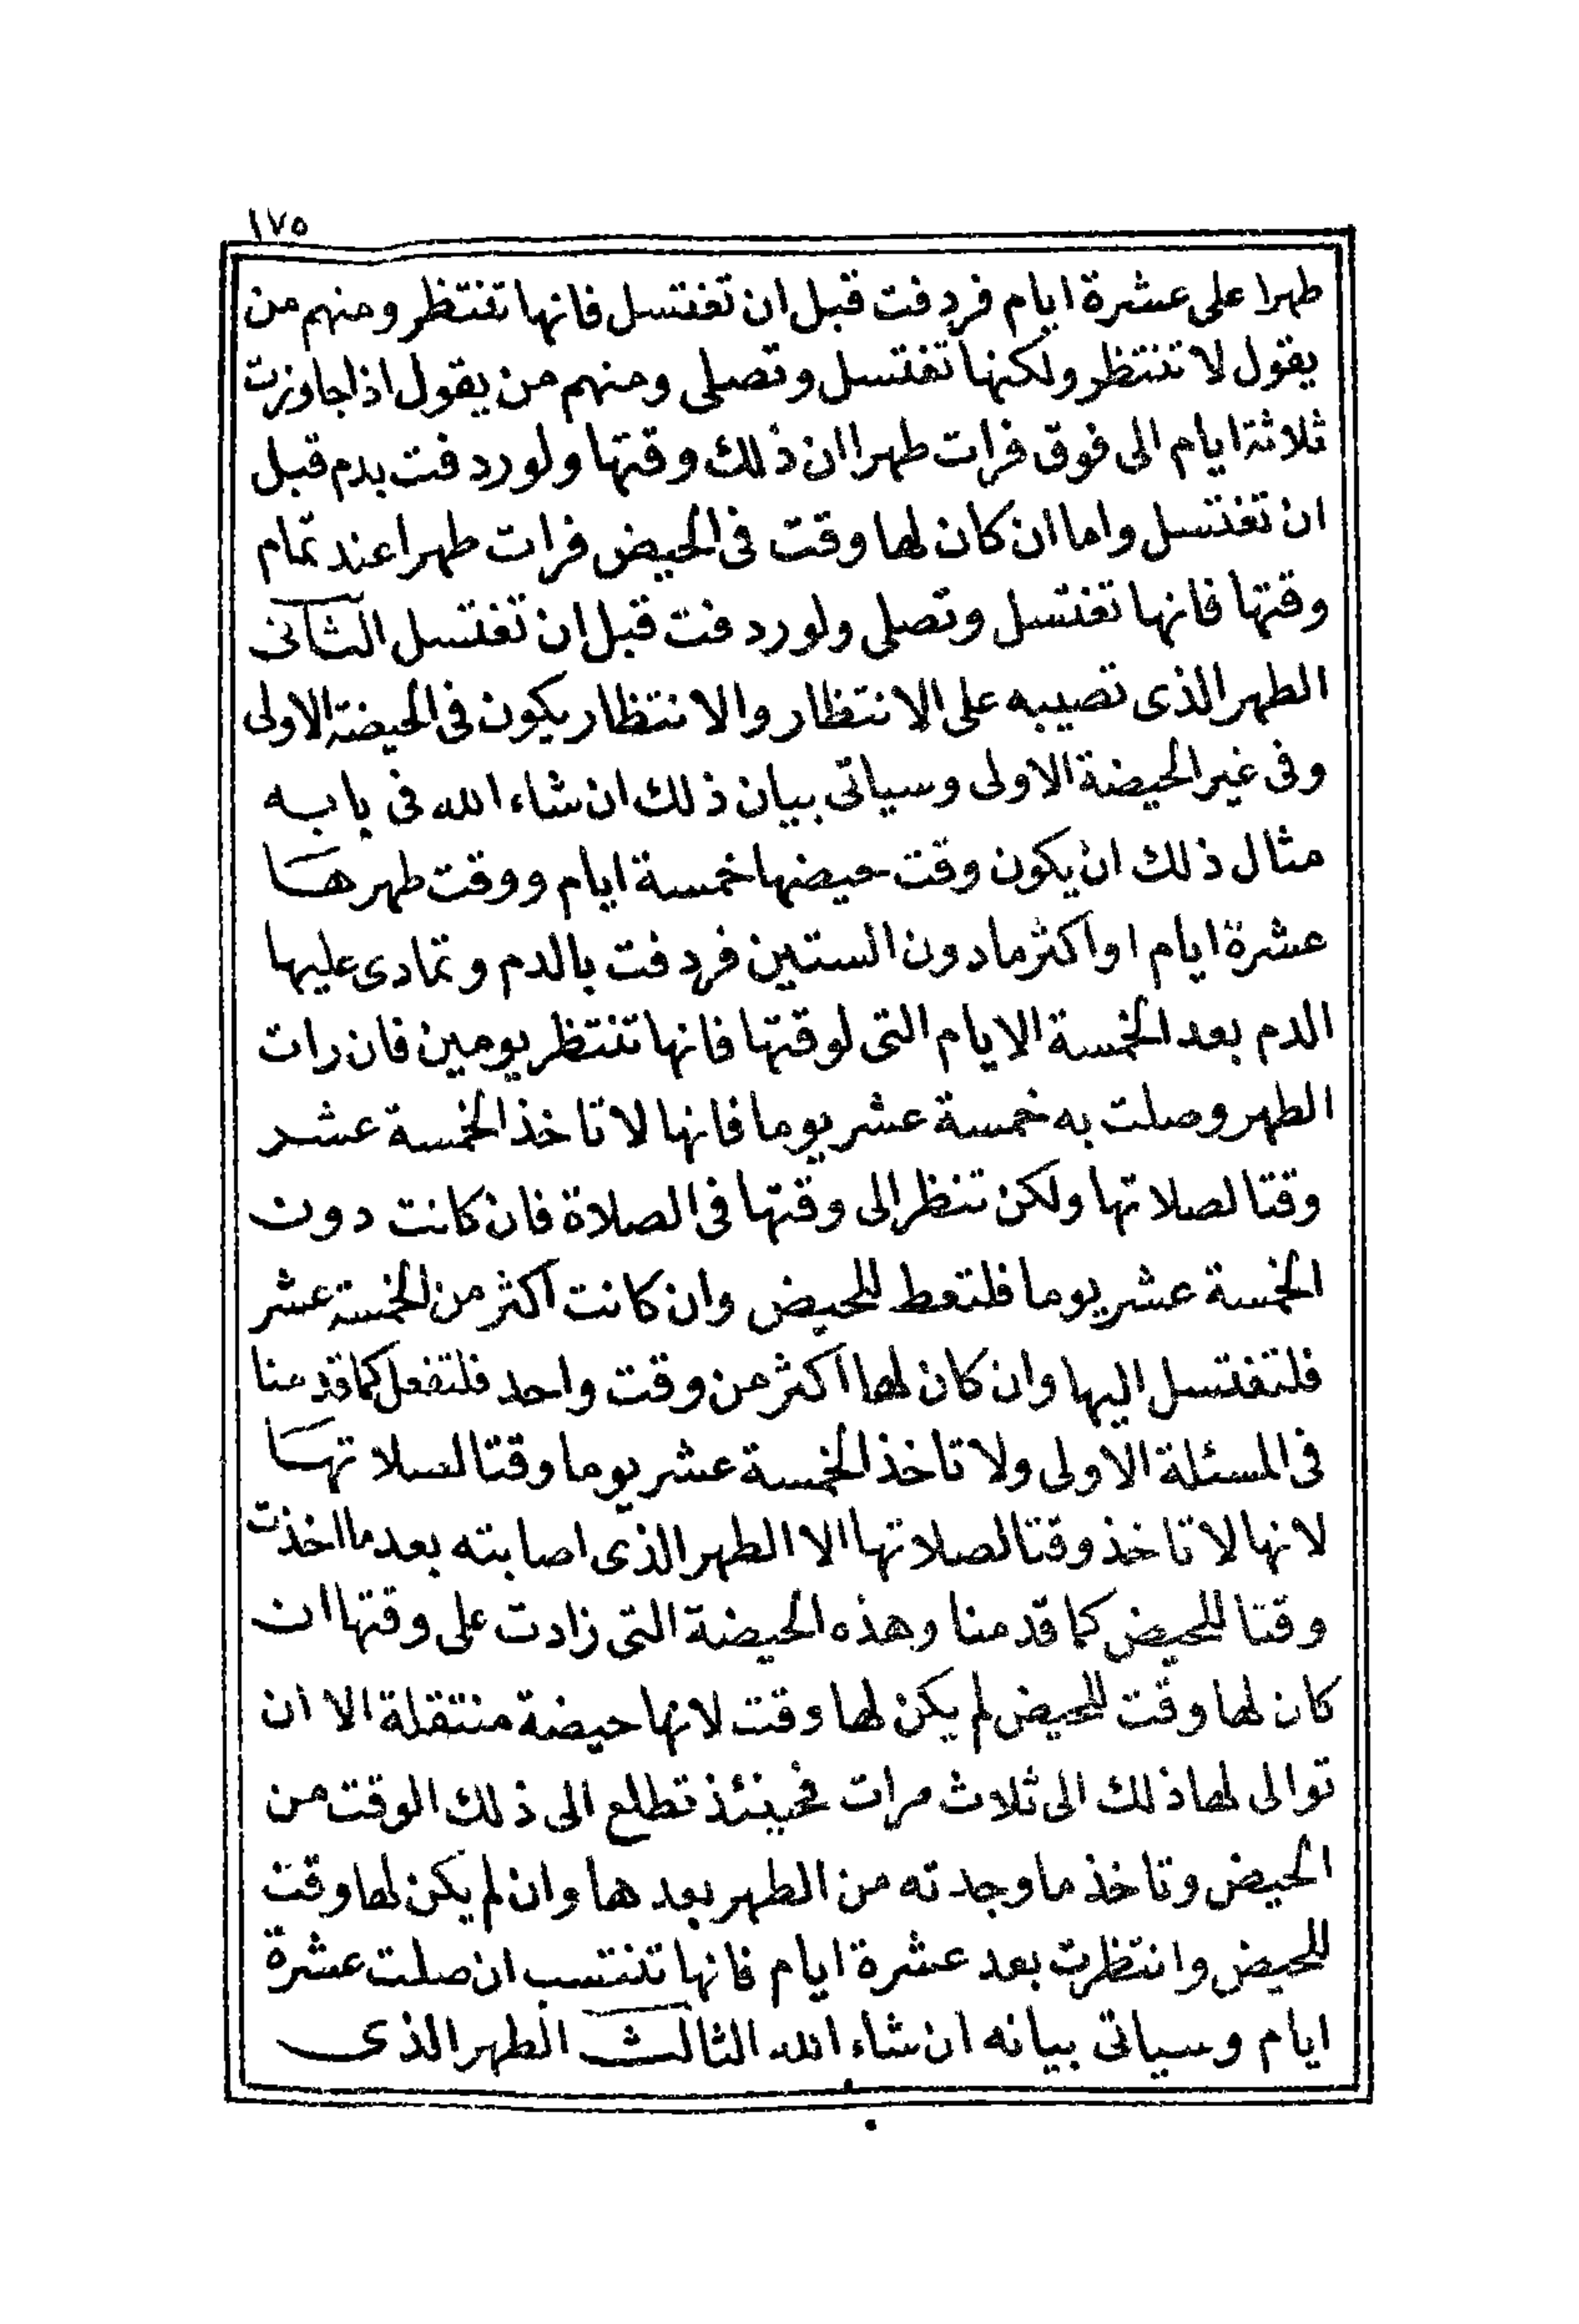 ١٧٥
طهرا على عشرة ايام فردفت قبل ان تغتسل فانها تنتظر ومنهم من
يقول لا تنتظر ولكنها تغتسل وتصلى ومنهم من يقول اذا جاوزت
ثلاثة ايام الى فوق فرات طهرا ان ذلك وقتها ولو ردفت بدم قبل
ان تغتسل واما ان كان لها وقت فى الحيض فرات طهرا عند تمام
وقتها فانها تغتسل وتصلى ولو ردفت قبل ان تغتسل الثانى
الطهر الذى تصيبه على الانتظار والانتظار يكون فى الحيضة الاولى
وفى غير الحيضة الاولى وسياتى بيان ذلك ان شاء الله فى بابه
مثال ذلك ان يكون وقت حيضها خمسة ايام ووقت طهرها
عشرة ايام او اكثر مادون الستين فردفت بالدم وتمادى عليها
الدم بعد الخمسة الايام التى لوقتها فانها تنتظر يومين فان رات
الطهر وصلت به خمسة عشر يوما فانها لا تاخذ الخمسة عشر
وقتا لصلاتها ولكن تنظر الى وقتها فى الصلاة فان كانت دون
الخمسة عشر يوما فلتعط للحيض وان كانت اكثر من الخمسة عشر
فلتغتسل اليها وان كان لها اكثر من وقت واحد فلتفعل كما قدمنا
فى المسئلة الاولى ولا تاخذ الخمسة عشر يوما وقتا لصلاتها
لانها لا تاخذ وقتا لصلاتها الا الطهر الذى اصابته بعد ما اخذت
وقتا للحيض كما قدمنا وهذه الحيضة التى زادت على وقتها ان
كان لها وقت للحيض لم يكن لها وقت لانها حيضة منتقلة الا ان
توالى لها ذلك الى ثلاث مرات فحينئذ تطلع الى ذلك الوقت من
الحيض وتاخذ ما وجدته من الطهر بعدها وان لم يكن لها وقت
للحيض وانتظرت بعد عشرة ايام فانها تنتسب ان صلت عشرة
ايام وسياتى بيانه ان شاء الله الثالث الطهر الذى